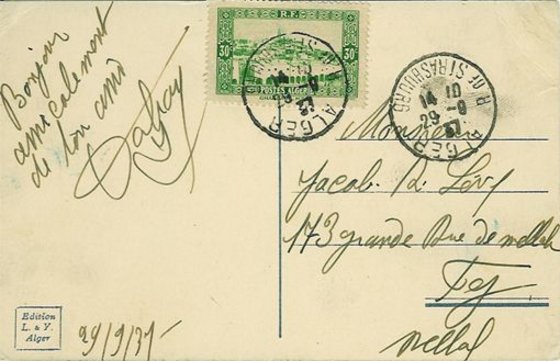 Bonjour
amicalement
de ton ami
30c R.F. 30c
POSTES ALGERIE
ALGER
14 10
29 -9
37
ALGER R. OF STRASBOURG
14 10
29 -9
37
Monsieur
Jacob. R. Lévy
173 grande Rue de mellah
Fez
mellah
Edition
L. & Y.
Alger
29/9/37